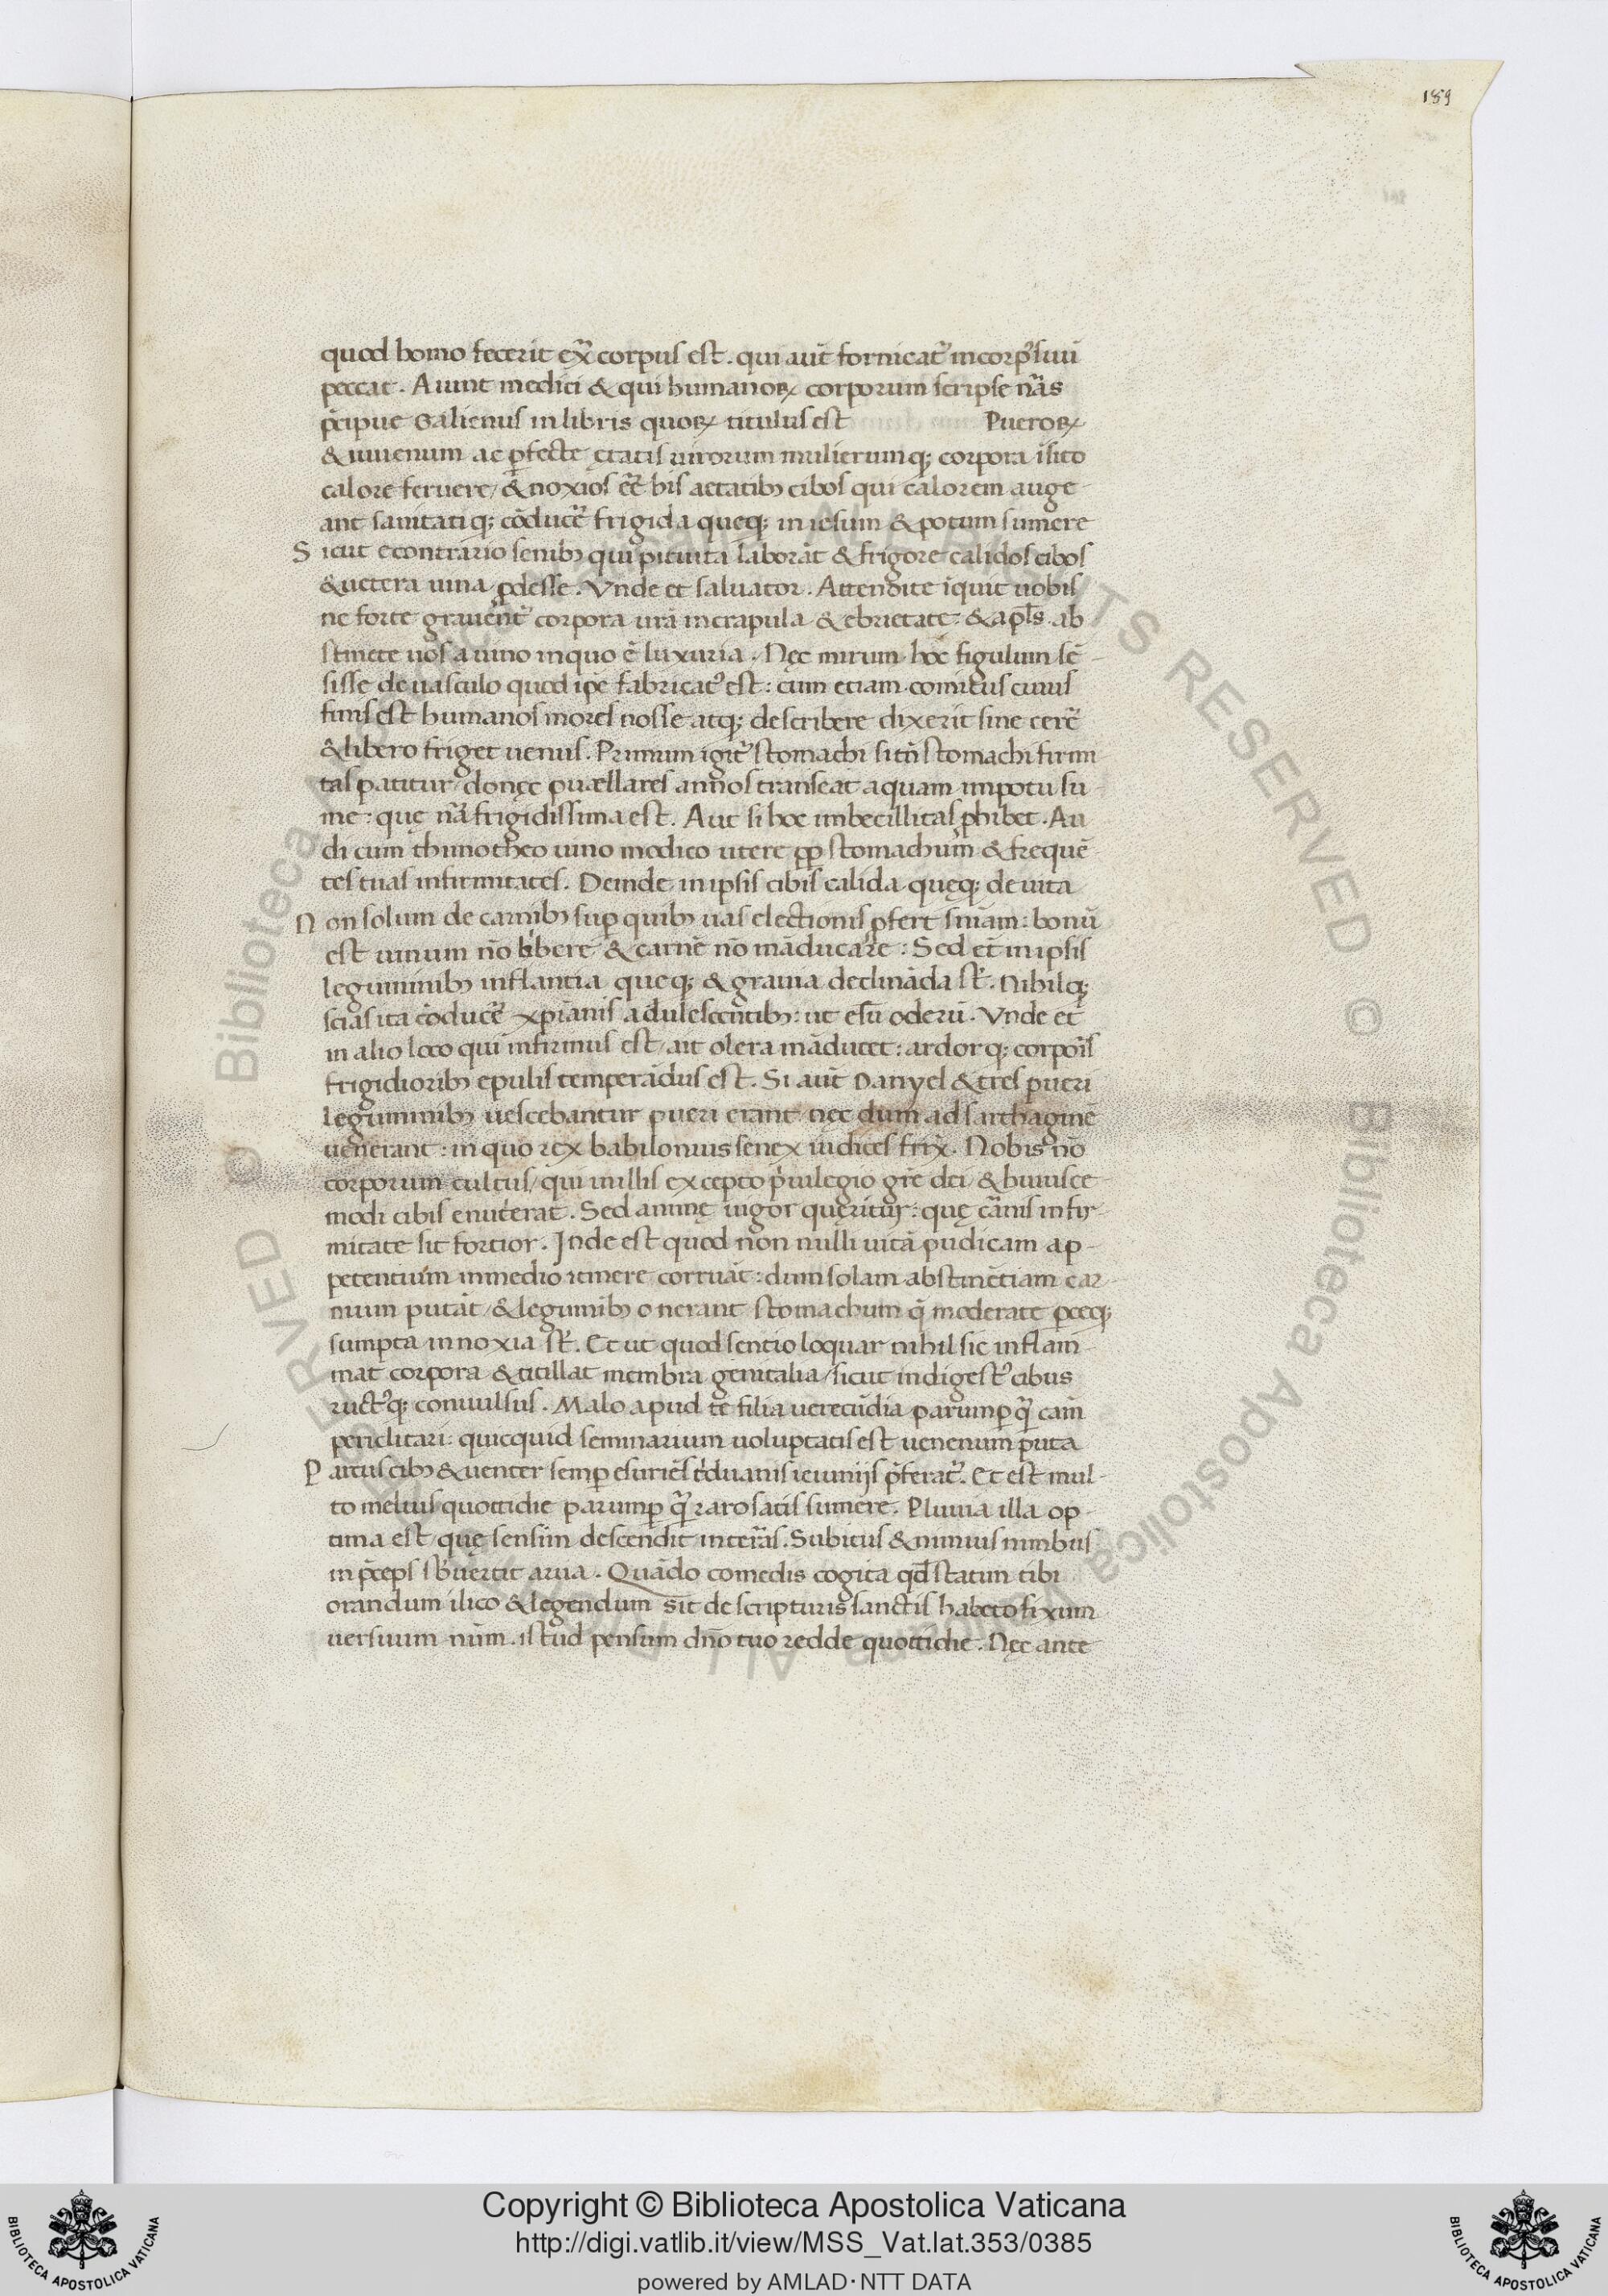 189
quod homo fecerit ext̃ corpus est. qui aut̃ fornicat᷑ in corp᷑ suũ
peccat. Aiunt medici & qui humanoꝝ corporum scripse nãs
p̃cipue Galienus in libris quoꝝ titulus est Pueroꝝ
& iuuenum ac ꝑfecte ętatis uirorum mulierumq; corpora ĩsito
calore feruere / & noxios ẽe his aetatibꝫ cibos qui calorem auge-
ant sanitatiq; cõducẽ frigida queq; in esum & potum sumere
Sicut econtrario senibꝫ qui pituita laborãt & frigore calidos cibos
& uetera uina ꝓdesse. Vnde et saluator. Attendite ĩquit uobis
ne forte grauent᷑ corpora urã in crapula & ebrietate: & apl̃s. ab
stinete uos a uino in quo ẽ luxuria. Nęc mirum hoc figulum sẽ-
sisse de uasculo quod ip̃e fabricat᷒ est: cum etiam comicus cuius
finis est humanos mores nosse atq; describere dixerit sine cerẽ
& libero friget uenus. Primum igit᷑ stomachi si tñ stomachi firmi
tas patitur donęc puællares annos transeat aquam in potu su-
me: quę nã frigidissima est. Aut si hoc imbecillitas ꝓhibet. Au
di cum thimotheo uino modico utere ꝓp̃ stomachum & frequẽ-
tes tuas infirmitates. Deinde in ipsis cibis calida quęq; deuita
Non solum de carnibꝫ suꝑ quibꝫ uas electionis ꝓfert sñiam: bonũ
est uinum nõ bibere & carnẽ nõ mãducare: Sed et̃ in ipsis
leguminibꝫ inflantia queq; & grauia declinãda st̃. Nihilq;
scias ita cõducẽ xp̃ianis adulescentibꝫ: ut esũ olerũ. Vnde et
in alio loco qui infirmus est / ait olera mãducet: ardorq; corpor̃is
frigidioribꝫ epulis temperãdus est. Si aut̃ Danyel & tres pueri
leguminibꝫ uescebantur pueri erant nęc dum ad sarthaginẽ
uenerant: in quo rex babilonius senex iudices frix̃. Nobis nõ
corporum cultus / qui in illis excepto p̃uilegio grẽ dei / & huiusce-
modi cibis enut̃erat. Sed animę uigor quęritur: quę cãnis infir-
mitate sit fortior. Inde est quod non nulli uitã pudicam ap-
petentium in medio itinere corruãt: dum solam abstinẽtiam car-
nium putãt / & legumibꝫ onerant stomachum q̃ moderate ꝑceq;
sumpta innoxia st̃. Et ut quod sentio loquar nihil sic inflam-
mat corpora & titillat membra genitalia / sicut indigest᷒ cibus
ruct᷒q; conuulsus. Malo apud te filia uerecũdia parumꝑ q̃ cam̃
periclitari: quicquid seminarium uoluptatis est uenenum puta
Partus cibꝫ & uenter semꝑ esuriẽs t̃duanis ieiuniis p̃ferat᷑. Et est mul-
to melius quottidie parumꝑ q̃ raro satis sumere. Pluuia illa op-
tima est / quę sensim descendit in terãs. Subitus & nimius nimbus
in p̃ceps s̃b uertit arua. Quãdo comedis cogita qd̃ statim tibi
orandum ilico & legendum sit de scripturis sanctis habeto fixum
uersuum nũm. istud pensum dño tuo redde quottidie. Nęc ante
Copyright © Biblioteca Apostolica Vaticana
http://digi.vatlib.it/view/MSS_Vat.lat.353/0385
powered by AMLAD·NTT DATA